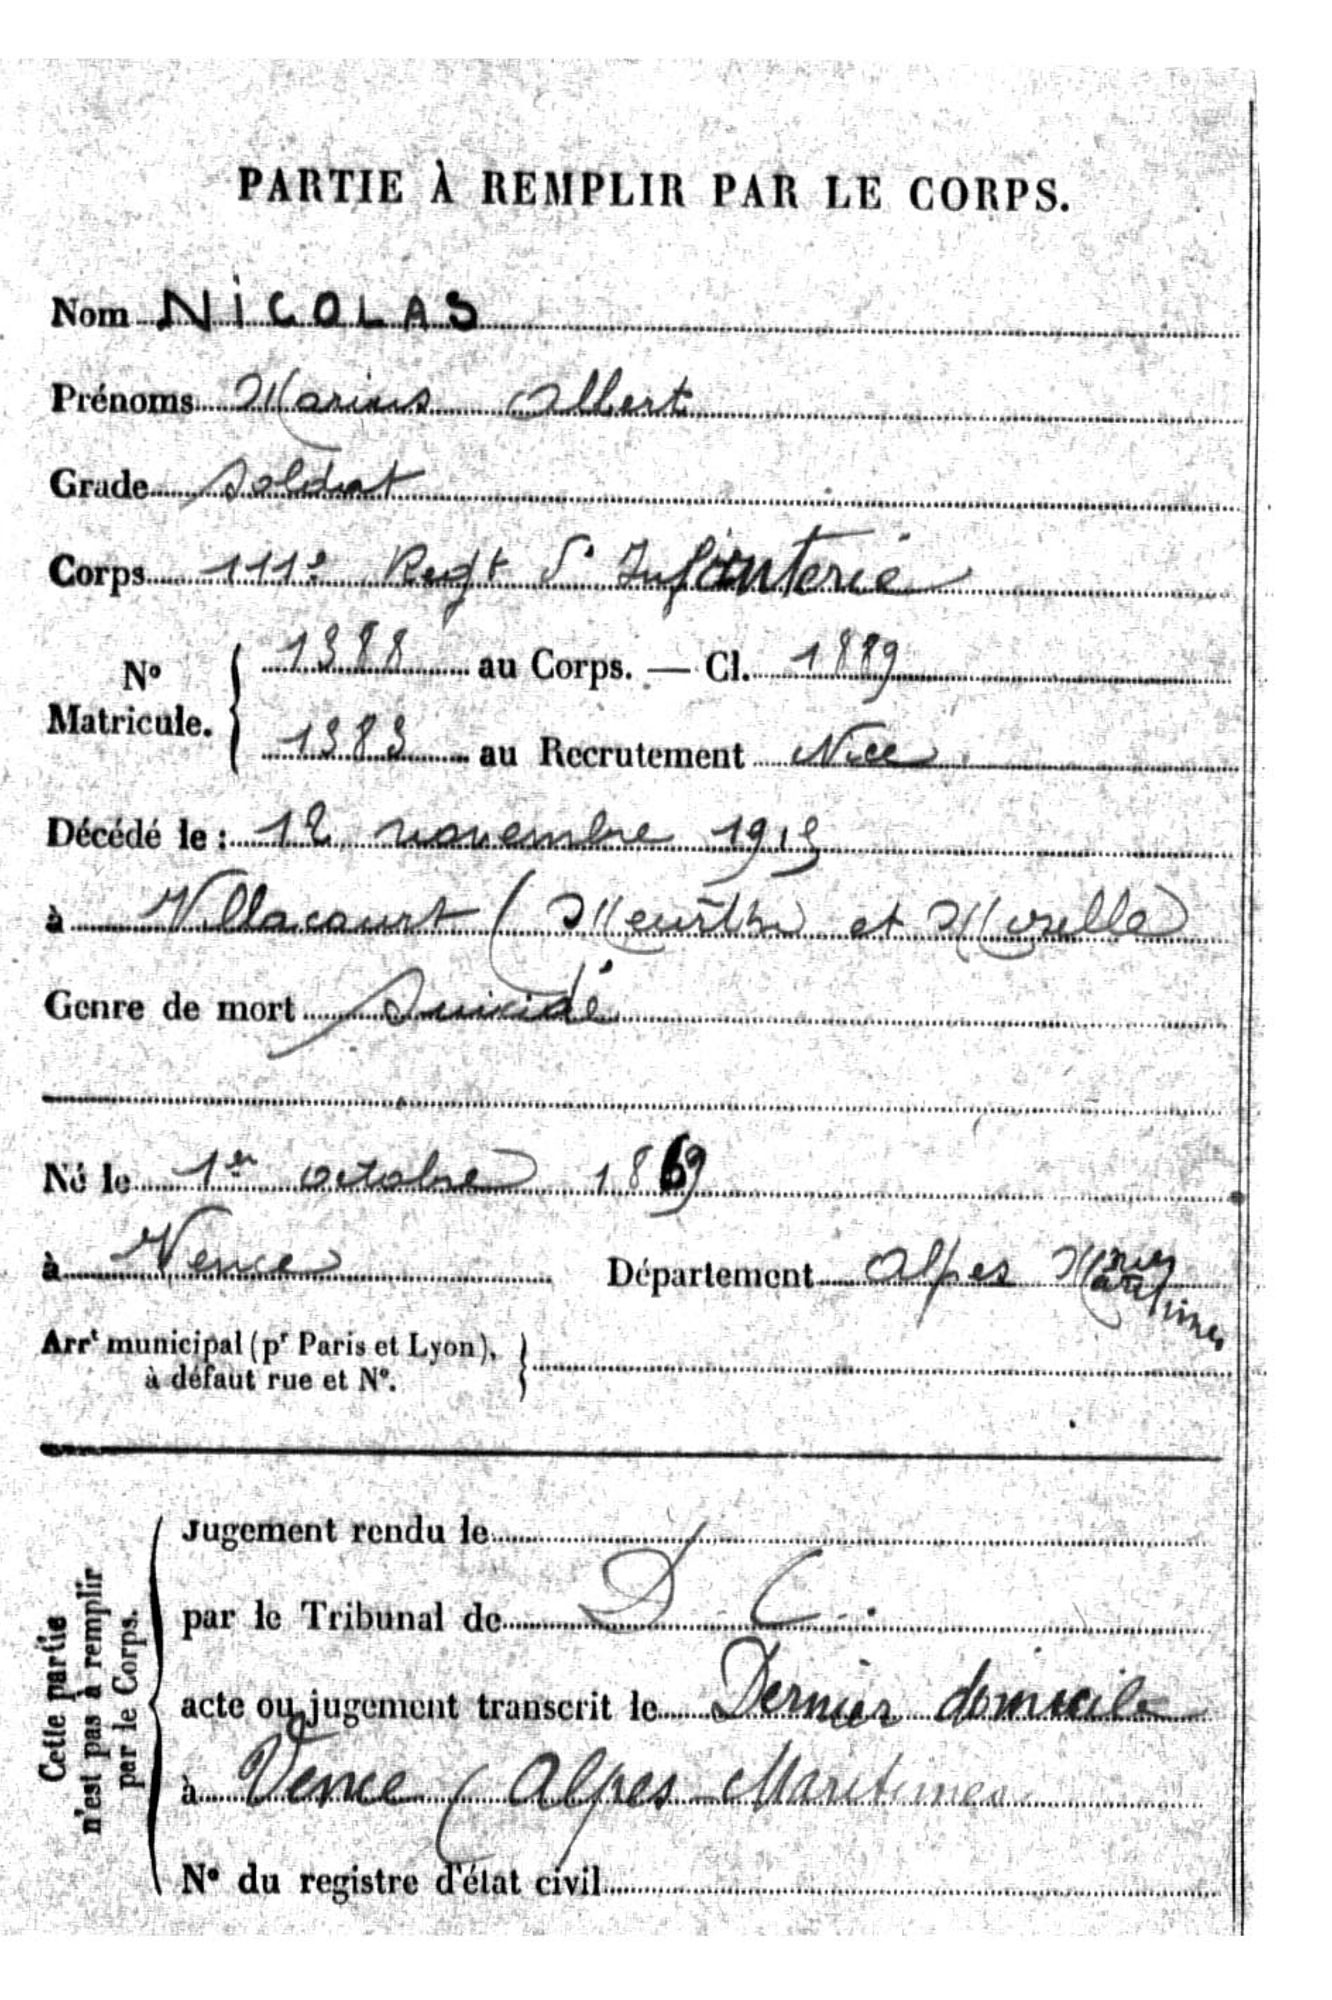 PARTIE À REMPLIR PAR LE CORPS.
Nom NICOLAS
Prénoms Marius Albert
Grade Soldat
Corps 111e Regt d'Infanterie
No Matricule. { 1388 au Corps. — Cl. 1889
1383 au Recrutement Nice
Décédé le : 12 novembre 1915
à Villacourt (Meurthe et Moselle)
Genre de mort Suicidé
Né le 1er octobre 1869
à Vence Département Alpes Maritimes
Arrt municipal (pr Paris et Lyon), }
à défaut rue et No.
Cette partie
n'est pas à remplir
par le Corps.
Jugement rendu le
par le Tribunal de D. C.
acte ou jugement transcrit le Dernier domicile
à Vence (Alpes Maritimes
No du registre d'état civil